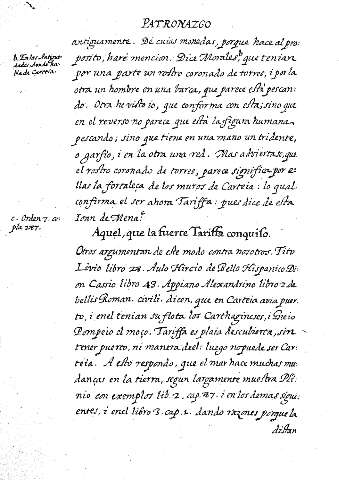 PATRONAZGO
antiguamente. De cuias monedas, porque hace al pro-
posito, haré mencion. Dice Morales,b que tenian
por una parte un rostro coronado de torres, i por la
otra un hombre en una barca, que parece está pescan-
do. Otra he visto io, que conforma con esta; sino que
en el reverso no parece que está la figura humana
pescando; sino que tiene en una mano un tridente,
o garfio, i en la otra una red. Mas adviertase, que
el rostro coronado de torres, parece significa por e-
llas la fortaleça de los muros de Carteia: lo qual
confirma el ser ahora Tariffa: pues dice de esta
Ioan de Mena.c
Aquel, que la fuerte Tariffa conquiso.
Otros argumentan de este modo contra nosotros. Tito
Livio libro 28. Aulo Hircio de Bello Hispanico Di-
on Cassio libro 43. Appiano Alexandrino libro 2. de
bellis Roman. civili. dicen, que en Carteia avia puer-
to, i en el tenian su flota los Carthagineses, i Gneio
Pompeio el moço. Tariffa es plaia descubierta, sin
tener puerto, ni manera de el: luego no puede ser Car-
teia. A esto respondo, que el mar hace muchas mu-
danças en la tierra, segun largamente muestra Pli-
nio con exemplos lib. 2. cap. 87. i en los demas sigui-
entes, i en el libro 3. cap. 1. dando razones porque la
distan
b. En las Antigue-
dades
de Carteia.
c. Orden 7. co-
pla 285.